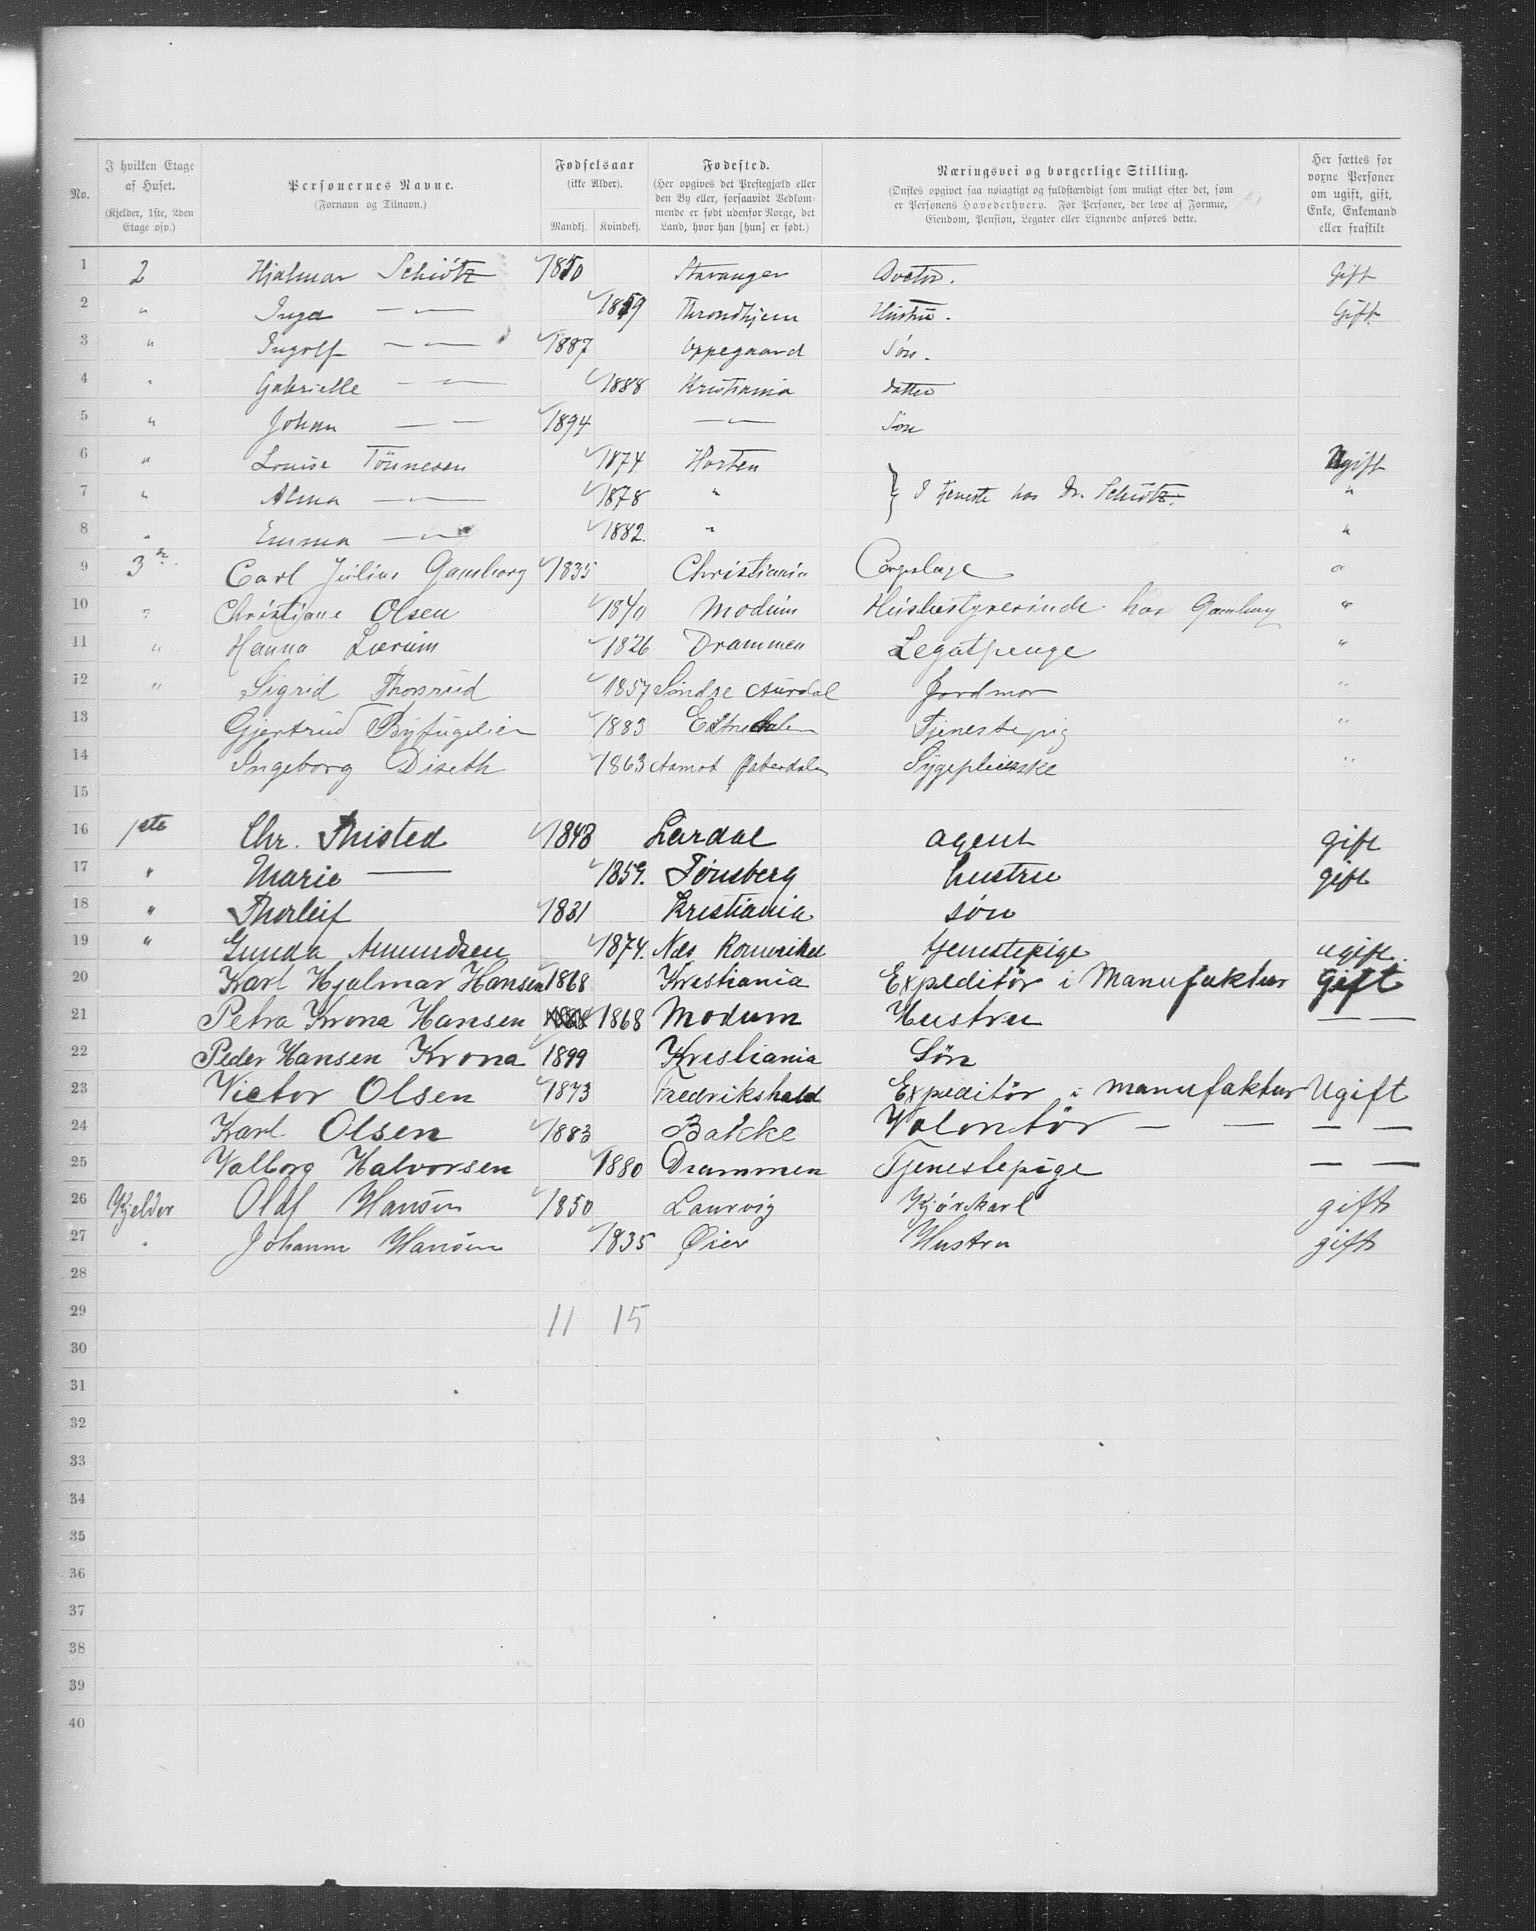 No.
I hvilken Etage af Huset.
(Kjelder, 1ste, 2den Etage osv.)
Personernes Navne.
(Fornavn og Tilnavn.)
Fødselsaar
(ikke Alder).
Mandkj. Kvindekj.
Fødested.
(Her opgives det Prestegjæld eller
den By eller, forsaavidt Vedkom-
mende er født udenfor Norge, det
Land, hvor han [hun] er født.)
Næringsvei og borgerlige Stilling.
(Ønskes opgivet saa nøiagtigt og fuldstændigt som muligt efter det, som
er Personens Hovederhverv. For Personer, der leve af Formue,
Eiendom, Pension, Legater eller Lignende anføres dette.
Her sættes for
voxne Personer
om ugift, gift,
Enke, Enkemand
eller fraskilt
1 2 Hjalmar Schiötz 1850 Stavanger Doctor. Gift
2 " Inga — " — 1859 Throndhjem Hustru. Gift.
3 " Ingolf — " — 1887 Oppegaard Søn.
4 " Gabrielle — " — 1888 Kristiania datter
5 " Johan — — 1894 — " — Søn
6 " Louise Tönnesen 1874 Horten Ugift
7 " Alma — " — 1878 " } I tjeneste hos Dr. Schiötz. "
8 " Emma — " — 1882. " "
9 3 Carl Julius Gamborg 1835 Christiania "
10 " Christiane Olsen 1840 Modum Husbestyrerinde hos Gamborg "
11 " Hanna Lærum 1826 Drammen Legatpenge "
12 " Sigrid Thorsrud 1857 Søndre Aurdal Jordmor "
13 Gjertrud Byfuglien 1883 Etnedalen Tjenestepig "
14 Ingeborg Diseth 1863 Aamot Østerdalen Sygepleierske "
15
16 1ste Chr. Thisted 1843 Lardal agent gift
17 " Marie — 1859. Tønsberg hustru gift
18 " Thorleif 1831 Kristiania søn
19 " Gunda Amundsen 1874. Næs Romerike tjenestepige ugift.
20 Karl Hjalmar Hansen 1868 Kristiania Expeditör i Manufaktur Gift
21 Petra Krona Hansen 1868 Modum Hustru — —
22 Peder Hansen Krona 1899 Kristiania Sön
23 Victor Olsen 1873 Fredrikshald Expeditör i manufaktur Ugift
24 Karl Olsen 1883 Bakke Volontör — — — —
25 Valborg Halvorsen 1880 Drammen Tjenestepige — —
26 Kjelder Olaf Hansen 1850 Laurvig Kjørekarl gift
27 " Johanne Hansen 1835 Øier Hustru gift
28
29 11 15
30
31
32
33
34
35
36
37
38
39
40